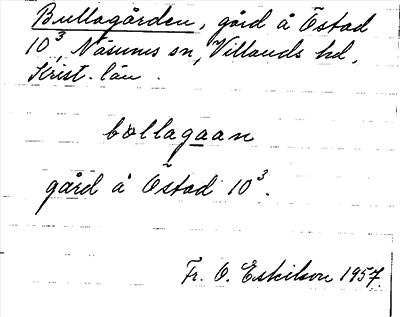 Bullagården, gård å Östad
10³, Näsums sn, Villands hd,
Krist. län.
bøllagaan
gård å Östad 10³.
Fr. O. Eskilson 1957.